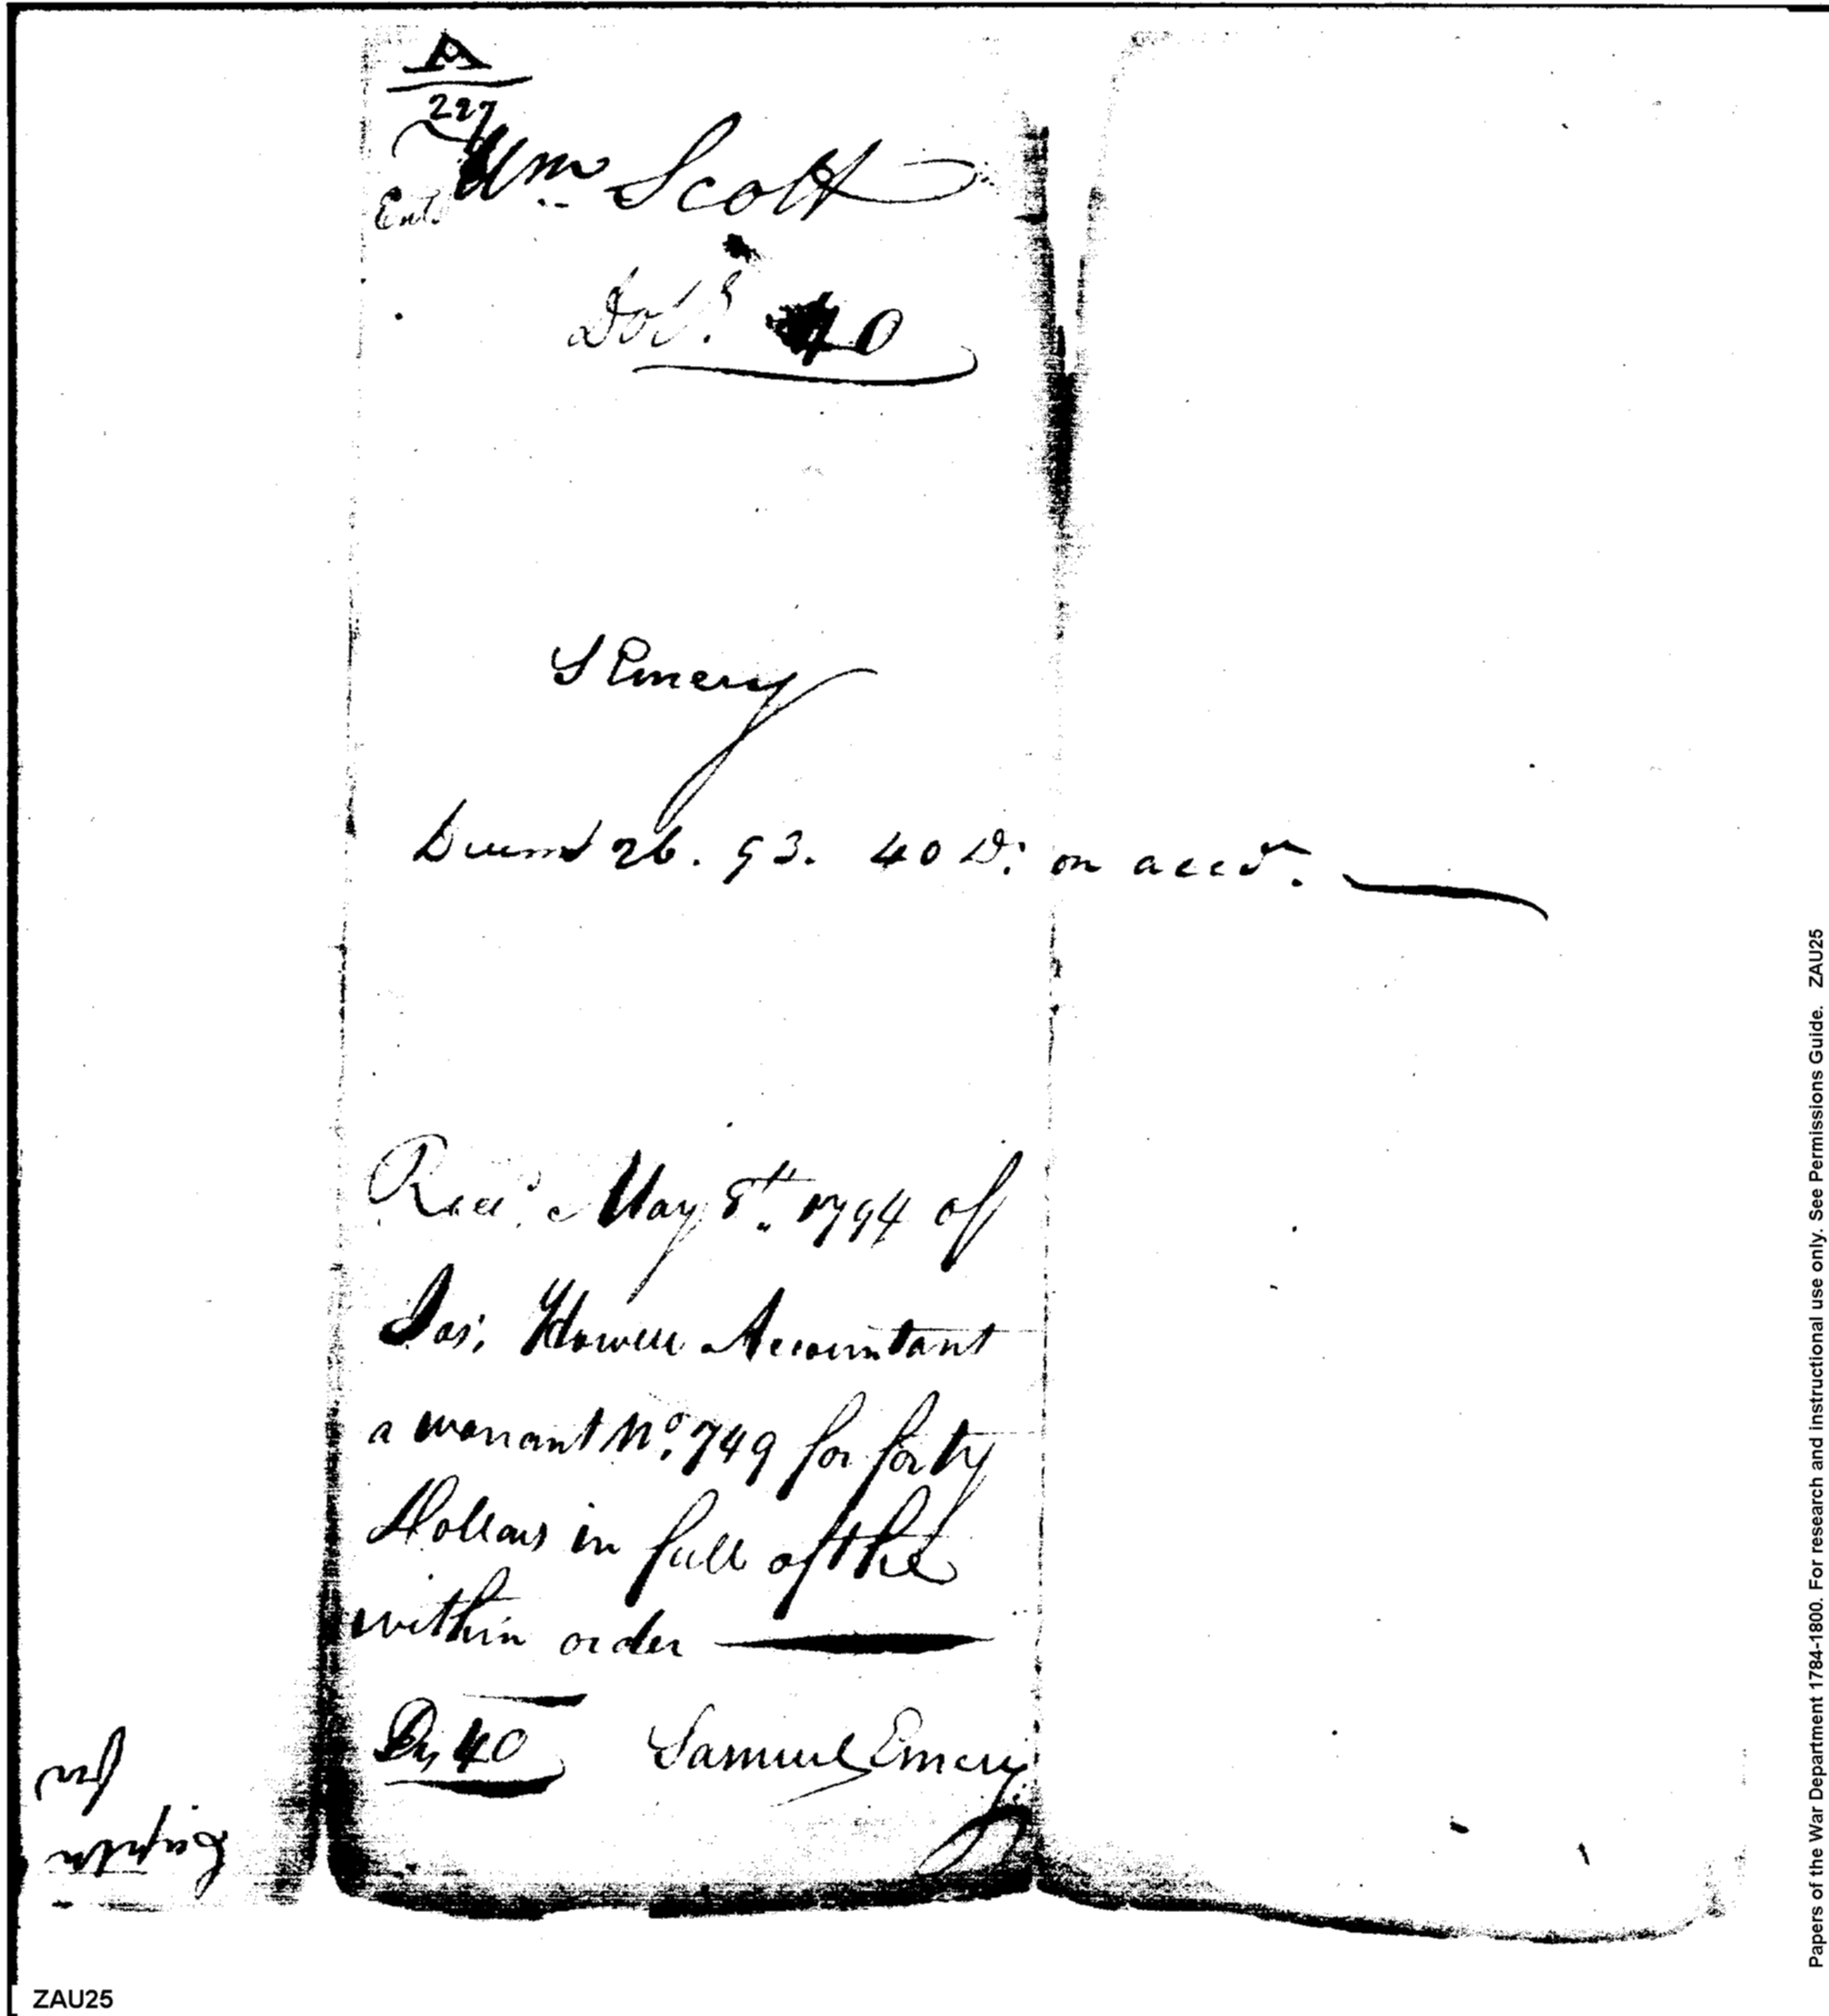 A
227
Wm Scott
Ent.
Dols. 40
S Emery
Decemr 26. 93. 40 D: on acco.
Recd. May 8th. 1794 of
Jos: Howell Accountant
a warrant No. 749 for forty
Dollars in full of the
within order
Ds 40 Samuel Emery
for
ZAU25
Papers of the War Department 1784-1800. For research and instructional use only. See Permissions Guide. ZAU25